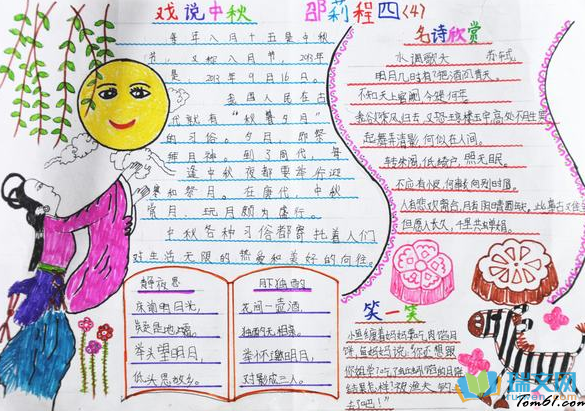 戏说中秋
邵莉程四<4>
每年八月十五是中秋
节,又称八月节。2013年
是 2013年9月16日。
我国人民在古
代就有“秋暮夕月”
的习俗。夕月,即祭
拜月神。到了周代,每
逢中秋夜都要举行迎
寒和祭月。在唐代,中秋
赏月、玩月颇为盛行。
中秋各种习俗都寄托着人们
对生活无限的热爱和美好的向往。
静夜思
床前明月光,
疑是地上霜。
举头望明月,
低头思故乡。
月独酌
花间一壶酒,
独酌无相亲。
举杯邀明月,
对影成三人。
名诗欣赏
水调歌头 苏轼
明月几时有?把酒问青天。
不知天上宫阙,今夕是何年。
我欲乘风归去,又恐琼楼玉宇,高处不胜寒
起舞弄清影,何似在人间。
转朱阁,低绮户,照无眠。
不应有恨,何事长向别时圆。
人有悲欢离合,月有阴晴圆缺,此事古难全
但愿人长久,千里共婵娟。
笑一笑
小熊缠着妈妈要吃
饼,熊妈妈说:“你还想跟
去了吧!”
瑞文网
Tom61.com